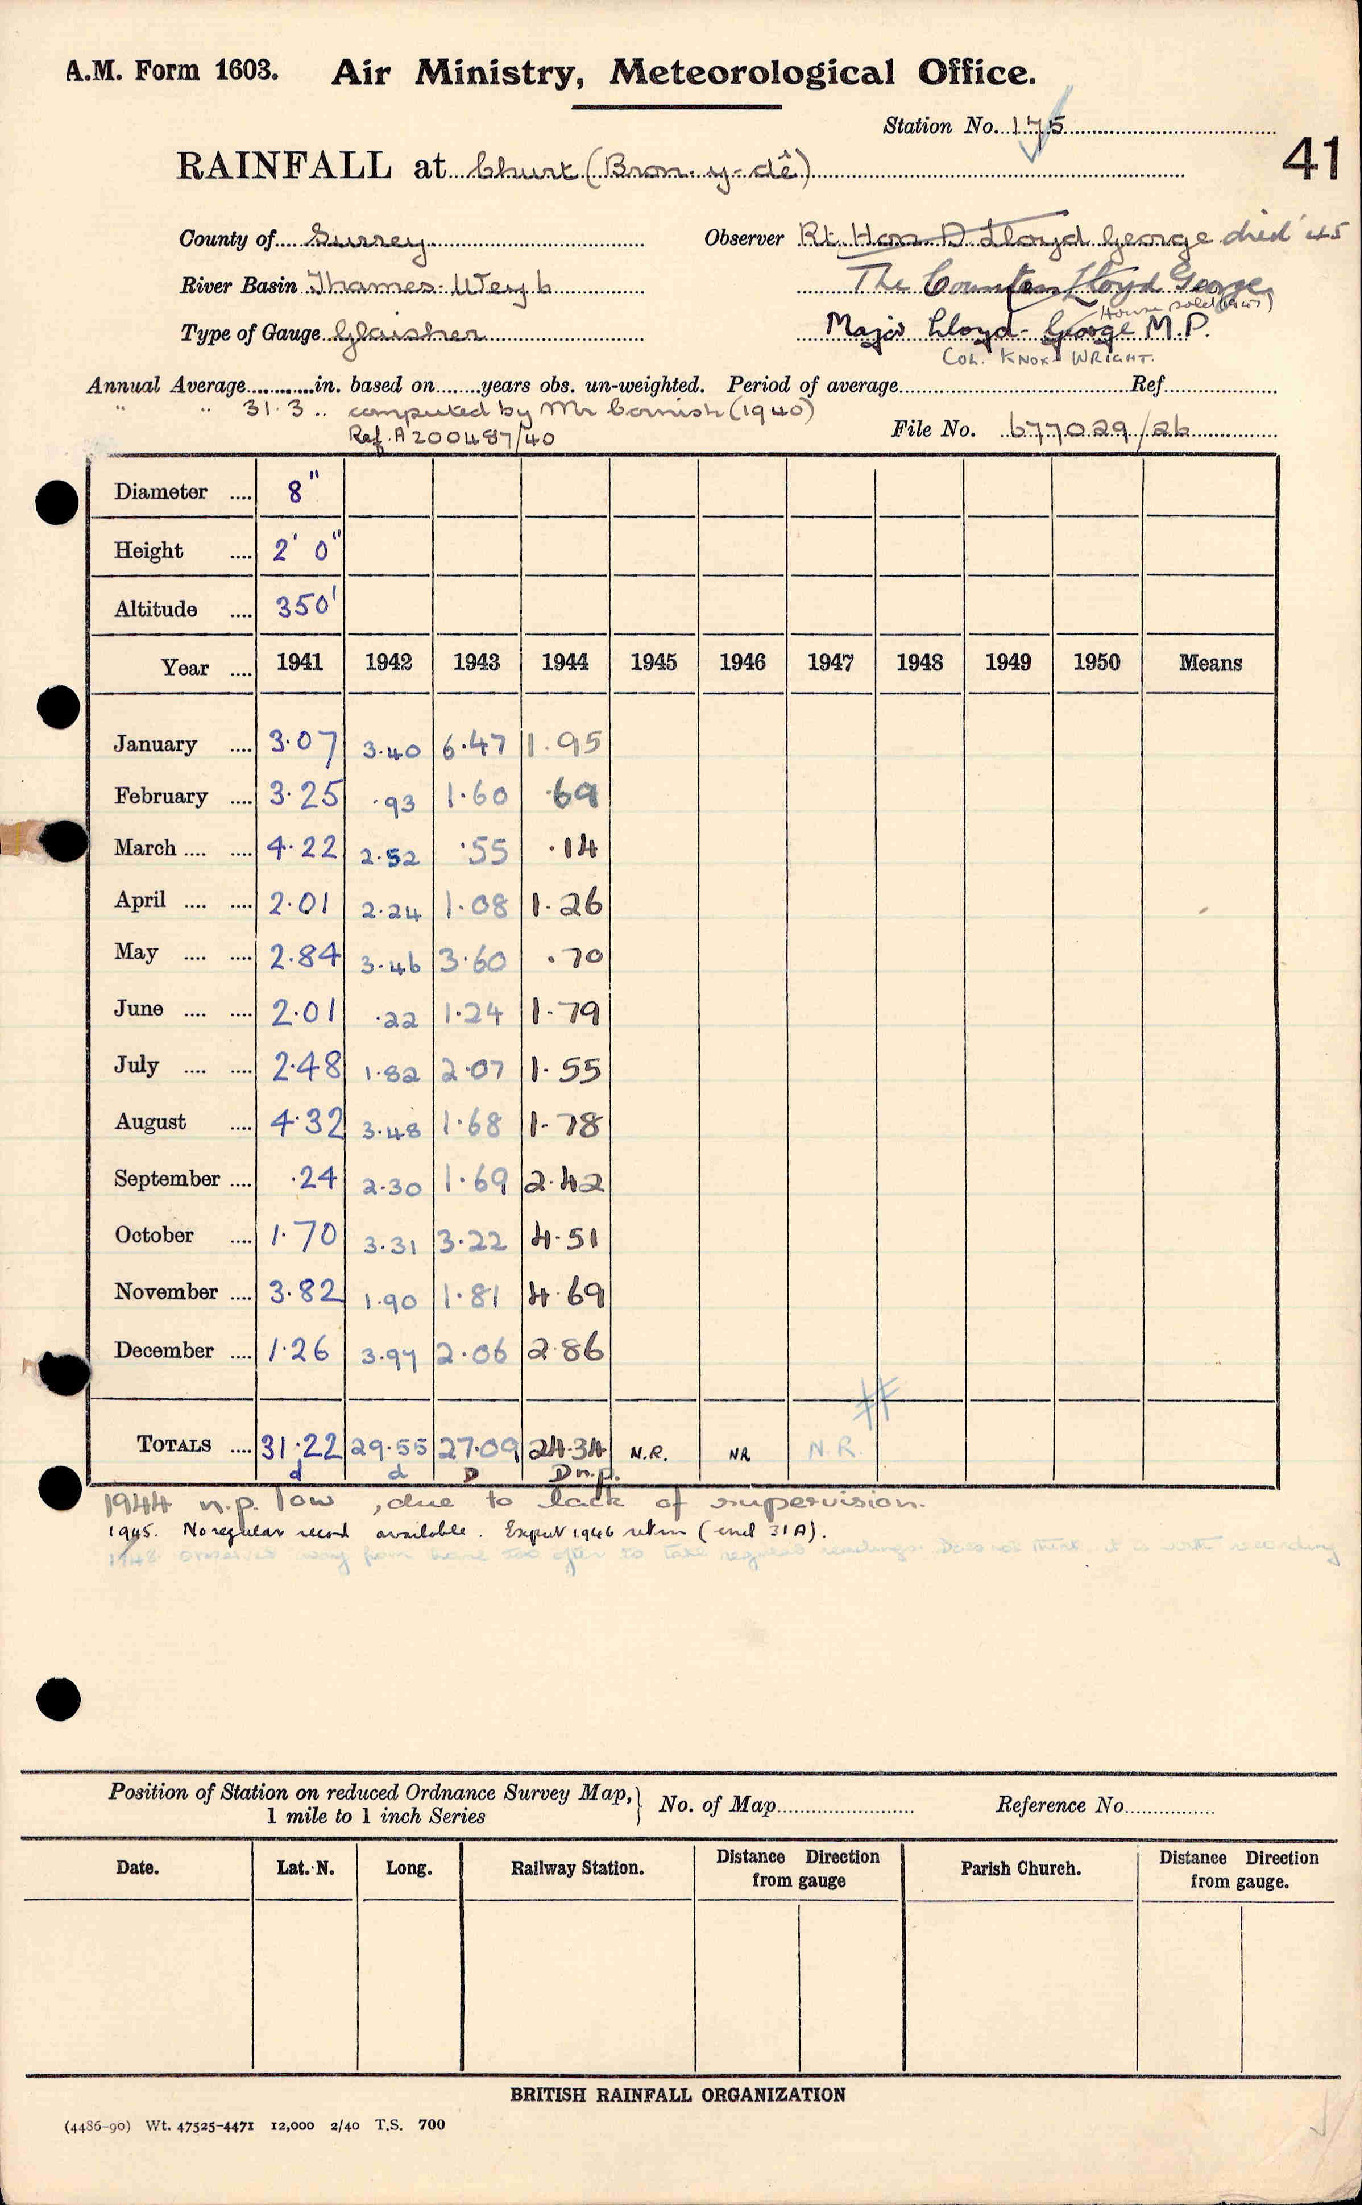 A.M. Form 1603. Air Ministry, Meteorological Office.
Station No. 175
41
RAINFALL at Churt (Bron-y-dê)
County of Surrey Observer Rt. Hon. D Lloyd George died '45
River Basin Thames-Wey 6 The Countess Lloyd George
House sold (1947)
Type of Gauge Glaisher Major Lloyd-George M.P.
COL. KNOX WRIGHT.
Annual Average..........in. based on.......years obs. un-weighted. Period of average.......... Ref..........
" " 31.3 .. computed by Mr Cornish (1940)
Ref. A 200487/40 File No. 677029/26
Diameter .... 8"
Height .... 2' 0"
Altitude .... 350'
Year .... 1941 1942 1943 1944 1945 1946 1947 1948 1949 1950 Means
January .... 3.07 3.40 6.47 1.95
February .... 3.25 .93 1.60 .69
March .... .... 4.22 2.52 .55 .14
April .... .... 2.01 2.24 1.08 1.26
May .... .... 2.84 3.46 3.60 .70
June .... .... 2.01 .22 1.24 1.79
July .... .... 2.48 1.82 2.07 1.55
August .... 4.32 3.48 1.68 1.78
September .... .24 2.30 1.69 2.42
October .... 1.70 3.31 3.22 4.51
November .... 3.82 1.90 1.81 4.69
December .... 1.26 3.97 2.06 2.86
TOTALS .... 31.22 29.55 27.09 24.34 N.R. NR N.R.
d d D D n.p.
1944 n.p. low, due to lack of supervision.
1945. No regular record available. Expect 1946 return (encl 31A).
1948 observer away from home too often to take regular readings. Does not think it is worth recording
Position of Station on reduced Ordnance Survey Map, 1 mile to 1 inch Series } No. of Map.......... Reference No..........
Date. Lat. N. Long. Railway Station. Distance Direction from gauge Parish Church. Distance Direction from gauge.
BRITISH RAINFALL ORGANIZATION
(4486-90) Wt. 47525-4471 12,000 2/40 T.S. 700